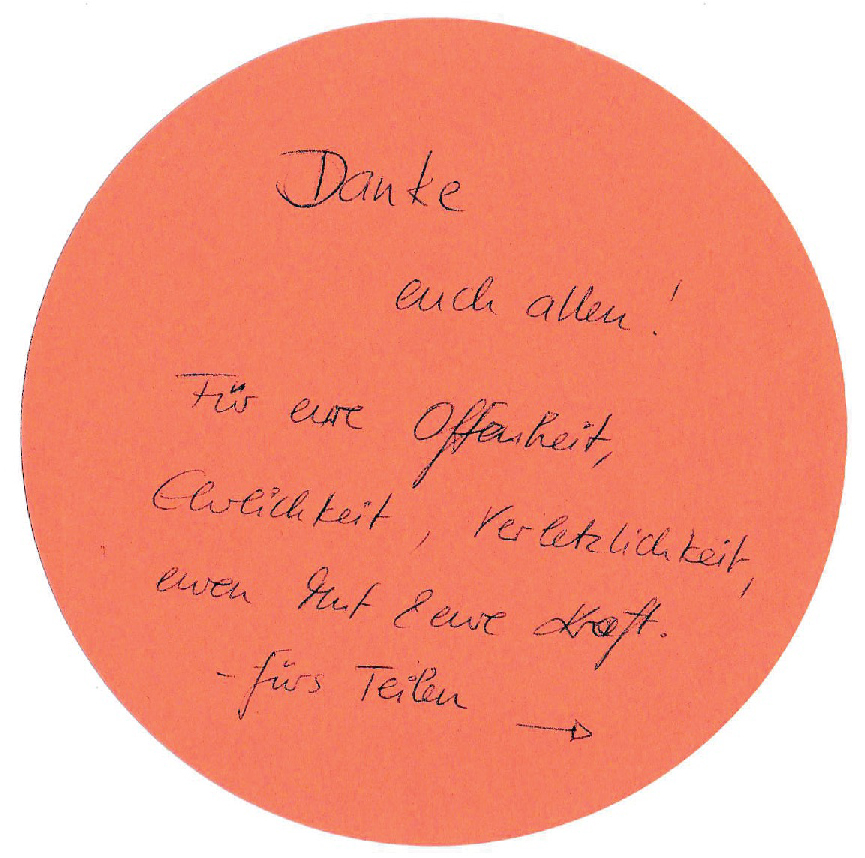 Danke
euch allen!
Für eure Offenheit,
Ehrlichkeit, Verletzlichkeit,
euren Mut & eure Kraft.
- fürs Teilen →